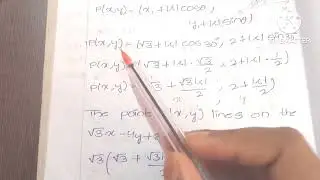 P(x,y) = (x₁+|x|cosθ,
y₁+|x|sinθ)
P(x,y) = (√3+|x|cos30°, 2+|x| sin30°
P(x,y) = (√3+ · √3/2, 2+|x|·1/2)
P(x,y) = (√3 + √3|x|/2, 2+|x|/2)
The point (x,y) lines on the
√3x-4y+
√3(√3+ √3|x|/2